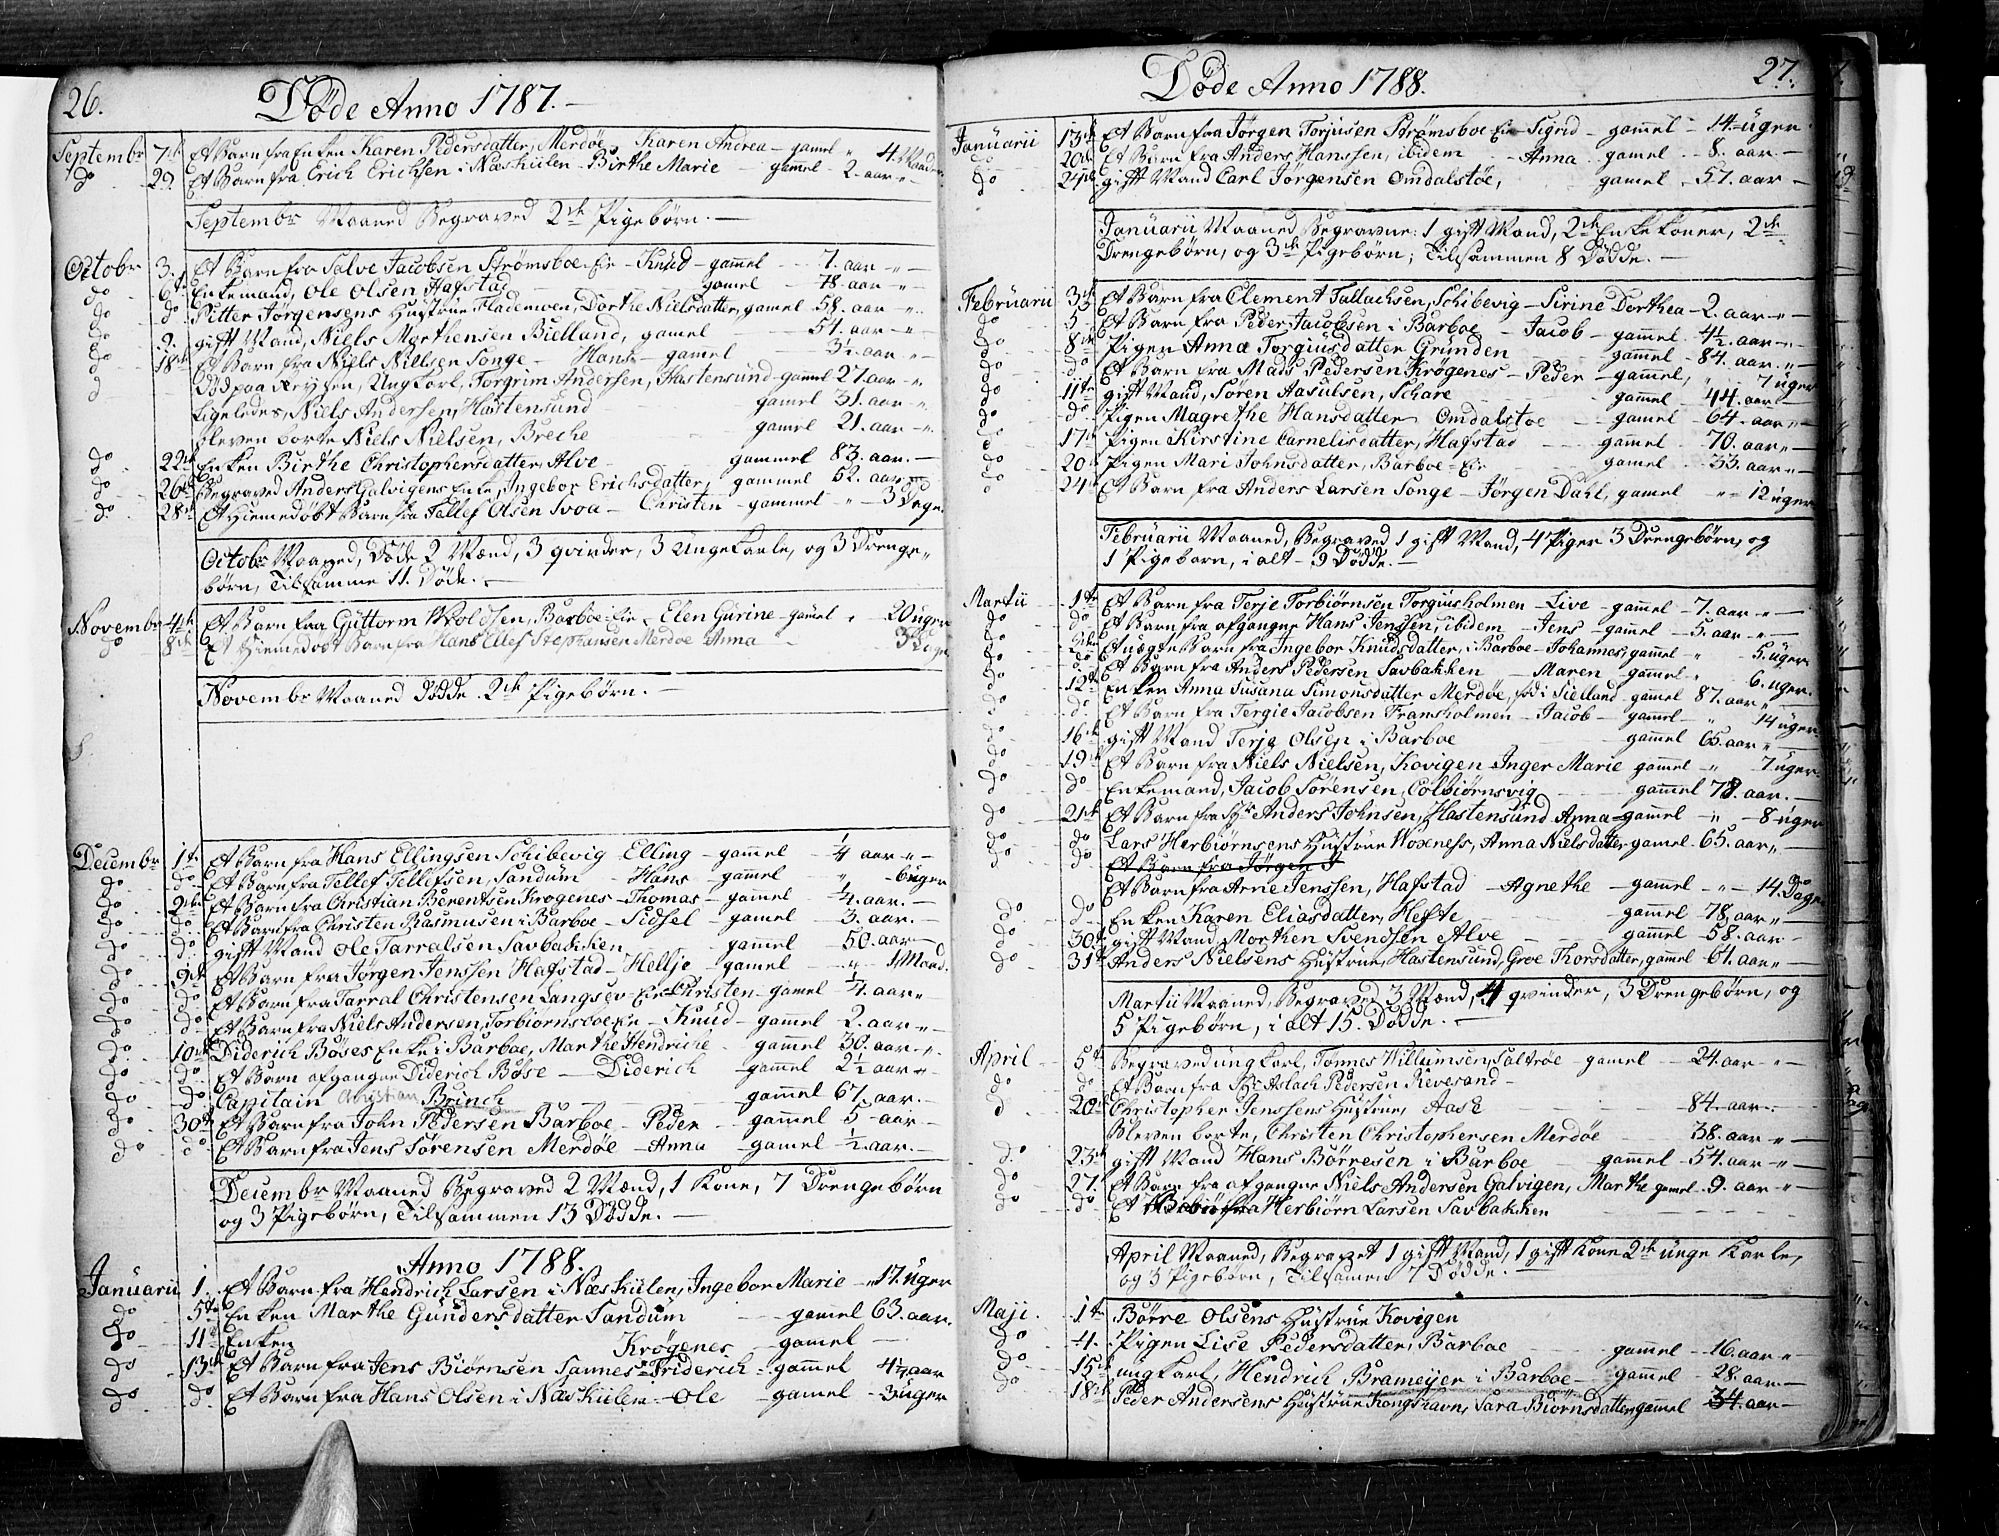 26.
Døde Anno 1787.
Septembr 7de Et Barn fra Enken Karen Pedersdatter, Merdöe Karen Andrea - gamel " 4. Maader
do 29. Et Barn fra Erich Erichsen i Næskilen - Birthe Marie - gamel - 2. aar -
Septembr Maaned Begraved 2de Pigebörn. -
Octobr 3. Et Barn fra Salve Jacobsen Strømsboe-Eie - Knud - gamel - 7. aar -
do 6te Enkemand, Ole Olsen Hafstad gamel - 78. aar -
do do Pitter Jørgensens Hustrue Flademoen, Dorthe Nielsdatter, gamel 58. aar -
do 9. gift Mand, Niels Morthensen Bielland, gamel - 51. aar -
do 18de Et Barn fra Niels Nielsen Songe - Hans - gamel - 3½. aar -
d Död paa Reysen, Ung Karl, Torgrim Andersen, Hastensund - gamel 27. aar -
Ligeledes, Niels Andersen, Hastensund gamel 31. aar -
bleven borte Niels Nielsen, Breche gamel 21. aar -
do 22de Enken Birthe Christophersdatter, Alve - gammel 83. aar. -
do 26de Begraved Anders Galvigens Enke, Ingebor Erichsdatter, gammel 52. aar
do 28de Et Hiemedøbt Barn fra Tellef Olsen Ivoa - Christen - gammel - " - 3 Dage
Octobr Maaned, Døde 2 Mænd, 3 qvinder, 3 Unge Karle, og 3 Drenge-
börn, Tilsamme 11. Døde. -
Novembr 4de Et Barn fra Guttorm Woldsen, Barboe-Eie - Elen Gurine - gamel " 20 uger
do 8de Et Hiemedøbt Barn fra Hans Ellef Stephansen Merdøe Anna - 3 Dage
Novembr Maaned Dødde 2de Pigebörn. -
Decembr 1te Et Barn fra Hans Ellingsen Schibevig - Elling - gamel ¼ aar -
do do Et Barn fra Tellef Tellefsen, Sandum - Hans - gamel " - 6 uger
do 2den Et Barn fra Christian Berentsen Krogenes - Thomas - gamel ¼. aar. -
do do Et Barn fra Christen Rasmusen i Barboe - Sidsel - gamel - 3. aar. -
do do gift Mand Ole Tarralsen Savbakken gamel - 50. aar -
do 9de Et Barn fra Jørgen Jenssen Hafstad - Hellje - gamel - " - 1 Maad.
do do Et Barn fra Tarral Christensen Langsev-Eie - Christen - gamel ¼. aar -
do do Et Barn fra Niels Andersen, Torbiørnsboe-Eie - Knud - gamel - 2. aar -
do 10de Diderich Böses Enke i Barboe, Marthe Hendriche - gamel - 30. aar -
do do Et Barn afgangne Diderich Böse - Diderich - gamel 2½ aar -
do do Capitain Christian Brinch gamel 67. aar. -
do 30te Et Barn fra John Pedersen Barboe - Peder - gamel - 5 - aar -
do do Et Barn fra Jens Sørensen Merdøe - Anna - gamel - ½. aar. -
Decembr Maaned Begraved 2 Mænd, 1 Kone, 7 Drengebörn
og 3 Pigebörn, Tilsammen 13 Dødde. -
Anno 1788.
Januarii 1. Et Barn fra Hendrich Larsen i Næskilen, Ingebor Marie - " 17. uger
do 5te Enken Marthe Gundersdatter Sandum - gamel 63. aar.
do 11te Enken Krøgenes - gamel -
do 13de Et Barn fra Jens Biørnsen Sannes - Friderich - gammel 4½ aar
do do Et Barn fra Hans Olsen i Næskilen - Ole - gamel - 3 uger
27.
Døde Anno 1788.
Januarii 13de Et Barn fra Jørgen Torjusen Strømsboe Eie - Sigrid - gamel - 14 uger
do 20de Et Barn fra Anders Hanssen, ibidem - Anna - gamel - 8. aar -
do 24de gift Mand Carl Jørgensen Omdalstøe, gamel - 57. aar -
Januarii Maaned Begravne: 1 gift Mand, 2de Enkekoner, 2de
Drengebörn, og 3de Pigebörn; Tilsammen 8 Dødde. -
Februarii 3de Et Barn fra Clement Tallachsen, Schibevig - Sirine Dorthea - 2. aar -
do 5 Et Barn fra Peder Jacobsen i Barboe - Jacob - gamel - 4½. aar -
do 8de Pigen Anna Torgiusdatter Grunden gamel - 84. aar. -
do do Et Barn fra Mads Pedersen Krøgenes - Peder - gamel, " 7 uger
do 11te gift Mand, Søren Aasulsen, Schare gamel - 44. aar -
do do Pigen Magrethe Hansdatter Omdalstøe - gamel - 64. aar -
do 17de Pigen Kirstine Carnelisdatter, Hafstad - gamel - 70. aar -
do 20de Pigen Mari Johnsdatter, Barboe-Eie gamel - 33. aar -
do 24de Et Barn fra Anders Larsen Songe - Jørgen Dahl, gamel " - 12 uger
Februarii Maaned, Begraved 1 gift Mand, 4 Piger 3 Drengebörn, og
1 Pigebarn, i alt - 9 Dødde. -
Martii 1te Et Barn fra Terje Torbiørnsen Torgiusholmen - Live - gamel - 7. aar -
do do Et Barn fra afgangne Hans Jenssen, ibidem - Jens - gamel - 5. aar -
do 2den Et uægte Barn fra Ingebor Knudsdatter, i Barboe - Johannes, gamel " 5. uger
do d. Et Barn fra Anders Pedersen Savbakken - Maren - gamel " 6. uger.
do 12te Enken Anna Susana Simonsdatter Merdøe, fød i Siælland gamel 87. aar -
d. Et Barn fra Tergie Jacobsen Fransholmen - Jacob - gamel - " 14 uger
do 16de gift Mand Terje Olsen i Barboe gamel 65. aar -
do 19de Et Barn fra Niels Nielsen, Kovigen - Inger Marie gamel - " 7 uger
do do Enkemand, Jacob Sørensen, Colbiørnsvig gamel 78. aar. -
do 21de Et Barn fra Anders Johnsen, Hastensund - Anna - gamel - " - 8 uger
do do Lars Herbiørnsens Hustrue Woxness, Anna Nielsdatter, gamel 65. aar -
do do Et Barn fra Jørgen J
Et Barn fra Arne Jenssen, Hafstad - Agnethe - gamel - " - 14 Dage
do do Enken Karen Eliasdatter, Hefte gamel 78. aar -
do 30te gift Mand Morthen Svendsen Alve - gamel - 58. aar -
do 31te Anders Nielsens Hustrue, Hastensund, Groe Thorsdatter, gamel 61. aar -
Martii Maaned, Begraved 3 Mænd, 4 qvinder, 3 Drengebörn, og
5 Pigebörn, i alt 15. Dødde. -
April 5te Begraved ung Karl, Tønnes Willumsen, Saltrøe - gamel - 24. aar -
do do Et Barn fra Aslach Pedersen Revesand -
d 20de Christopher Jenssens Hustrue, Aase 84. aar -
Bleven borte, Christen Christophersen Merdøe - 38. aar -
do 23de gift Mand Hans Børresen i Barboe - gamel - 54. aar -
do 27. Et Barn fra afgangne Niels Andersen Galvigen, Marthe gamel 9. aar -
do do Et Herbiørn Larsen Savbakken
April Maaned, Begravet 1 gift Mand, 1 gift Kone 2de unge Karle,
og 3 Pigebörn, Tilsamen 7 Dødde. -
Maji. 1te Børre Olsens Hustrue Kovigen
do 4. Pigen Lise Pedersdatter, Barboe gamel - 16. aar -
do 15de ung Karl, Hendrich Brameyer i Barboe - gamel - 28. aar -
do 18de Peder Andersens Hustrue Kongshavn, Sara Biørnsdatter, gamel 34. aar -